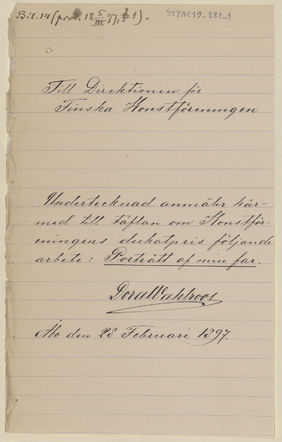 Bil. 14 (prot. 18 5/III 97, § 1).
STYAL19_281_1
Till Direktionen för
Finska Konstföreningen
Undertecknad anmäler här-
med till täflan om Konstför-
eningens dukatpris följande
arbete: Porträtt af min far.
Dora Wahlroos
Åbo den 28 Februari 1897.